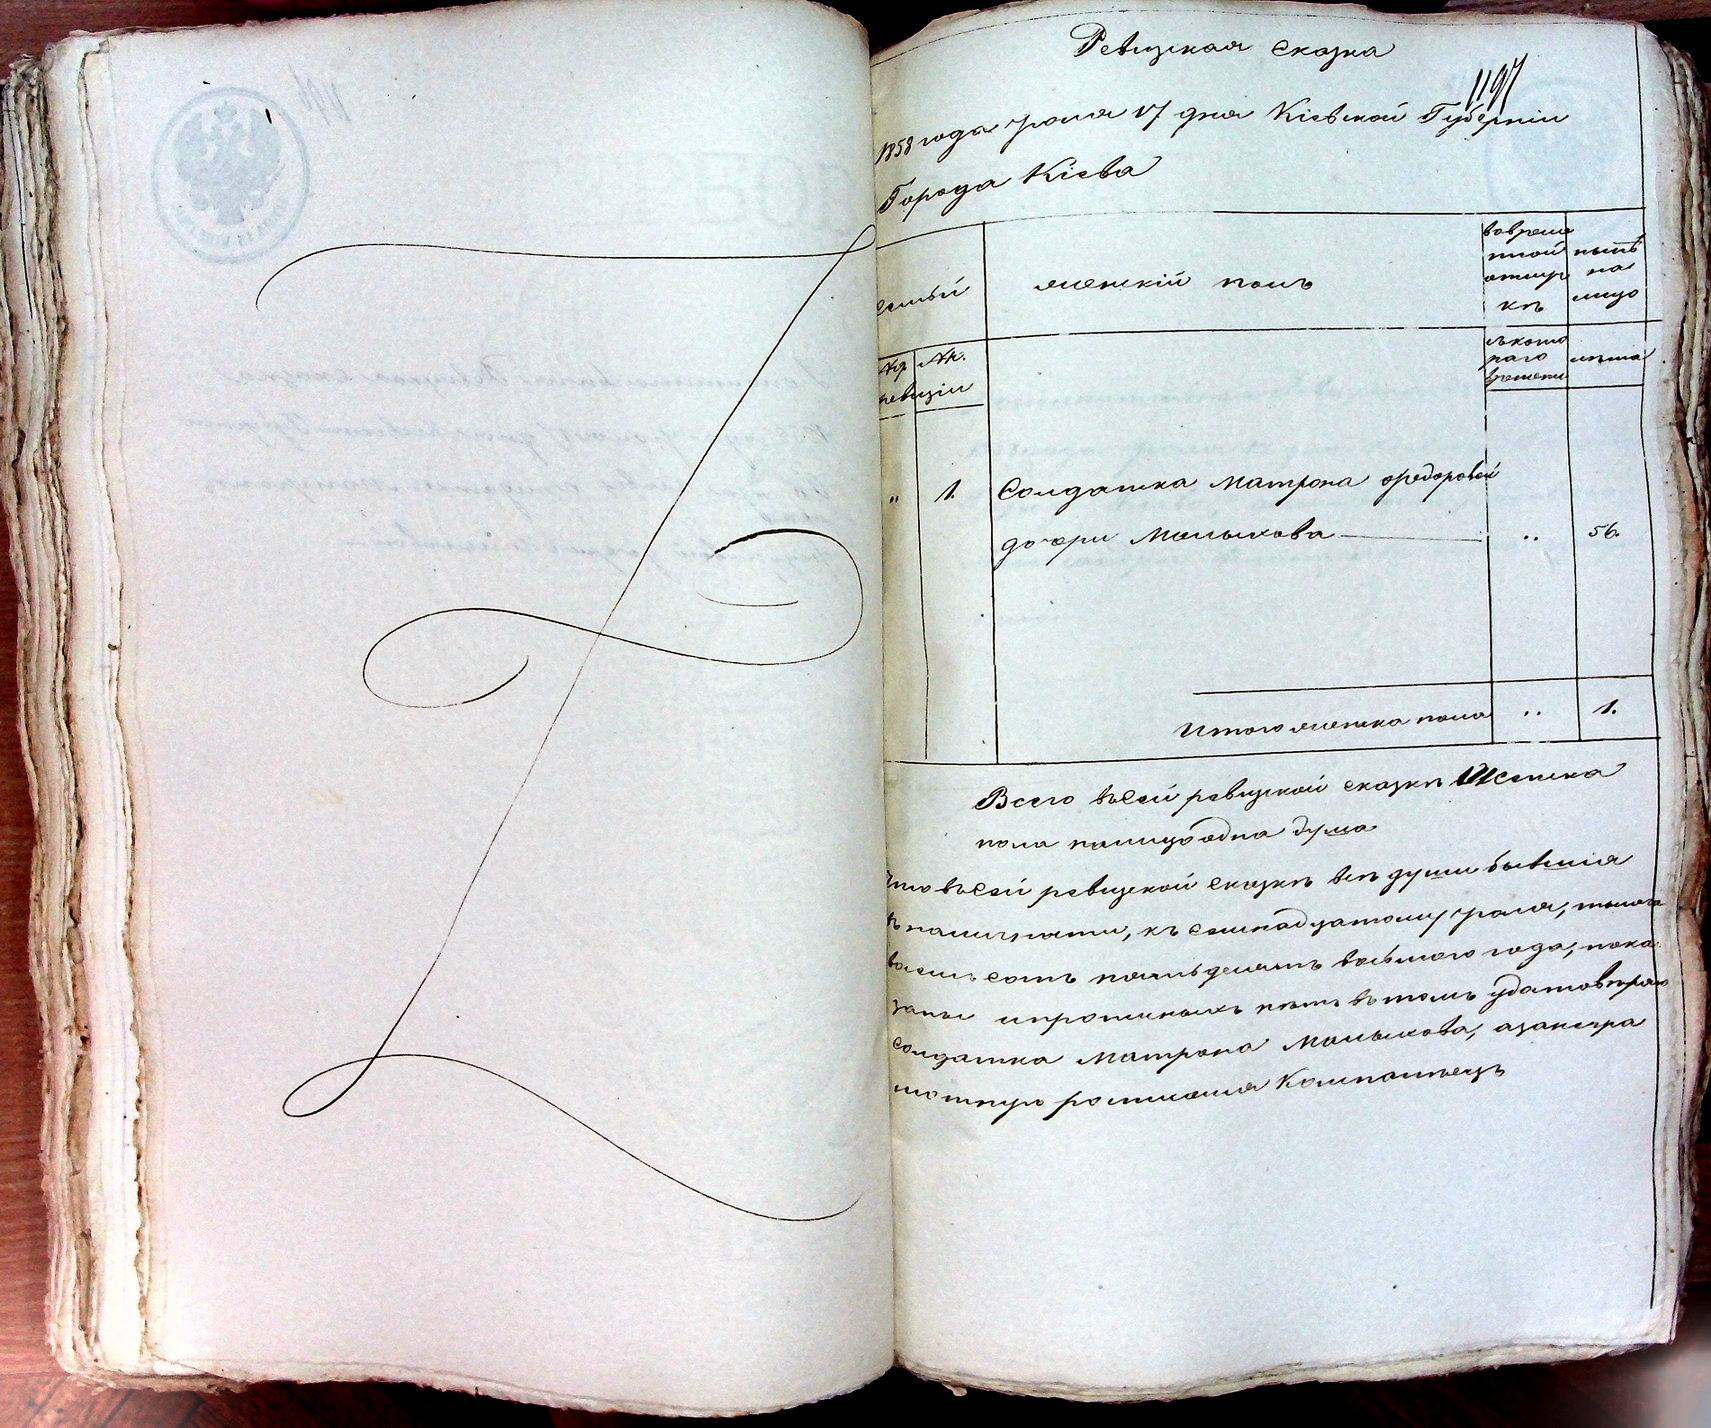 Ревизская сказка
1197
1858 года Іюля 17 дня Кіевской Губерніи
Города Кіева
семьи
женскій полъ
во време
нной
отлуч
кѣ
нынѣ
на
лицо
ревизіи
съ кото
раго
времени
лѣта
„ 1. Солдатка Матрона Федоровой
дочери Малыхова „ 56.
Итого женска пола „ 1.
Всего въ сей ревизской сказкѣ Женска
пола налицо одна душа
Что въ сей ревизской сказкѣ всѣ души бывшія
въ наличности, къ семнадцатому Іюля, тысяча
восемь сотъ пятьдесятъ восьмого года, пока
заны и прописныхъ нѣтъ въ томъ удостовѣряю
Солдатка Матрона Малыхова, а за негра
мотную росписался